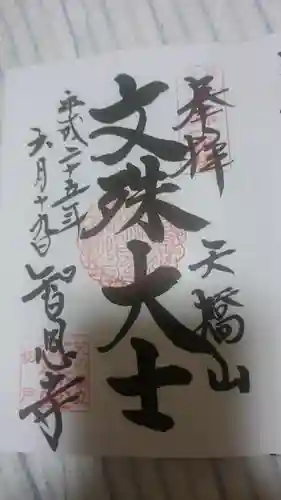 奉拝
天橋山
文殊大士
平成二十五年
五月十九日
智恩寺